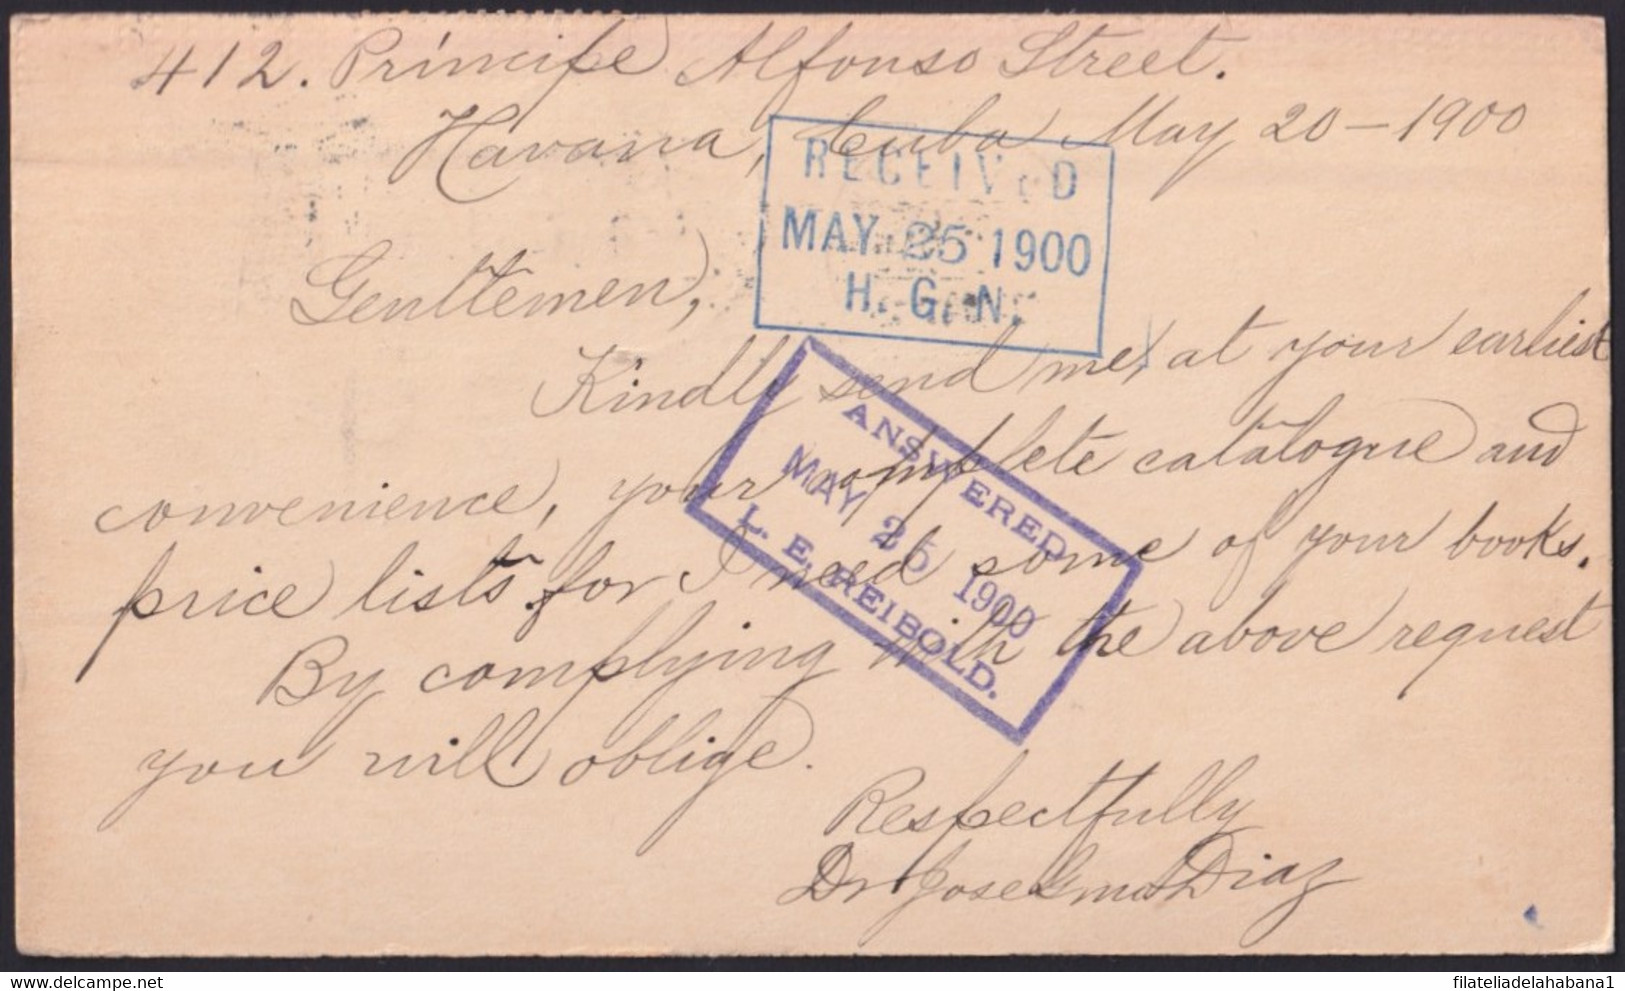 412. Príncipe Alfonso Street.
Havana, Cuba May 20 - 1900
RECEIVED
MAY 25 1900
H. G. N.
Genttemen,
Kindly send me, at your earliest
convenience, your complete catalogue and
price lists for I need some of your books.
ANSWERED
MAY 25 1900
L. E. REIBOLD.
By complying with the above request
you will oblige.
Respectfully
Dr Jose Diaz
filateliadelahabana1